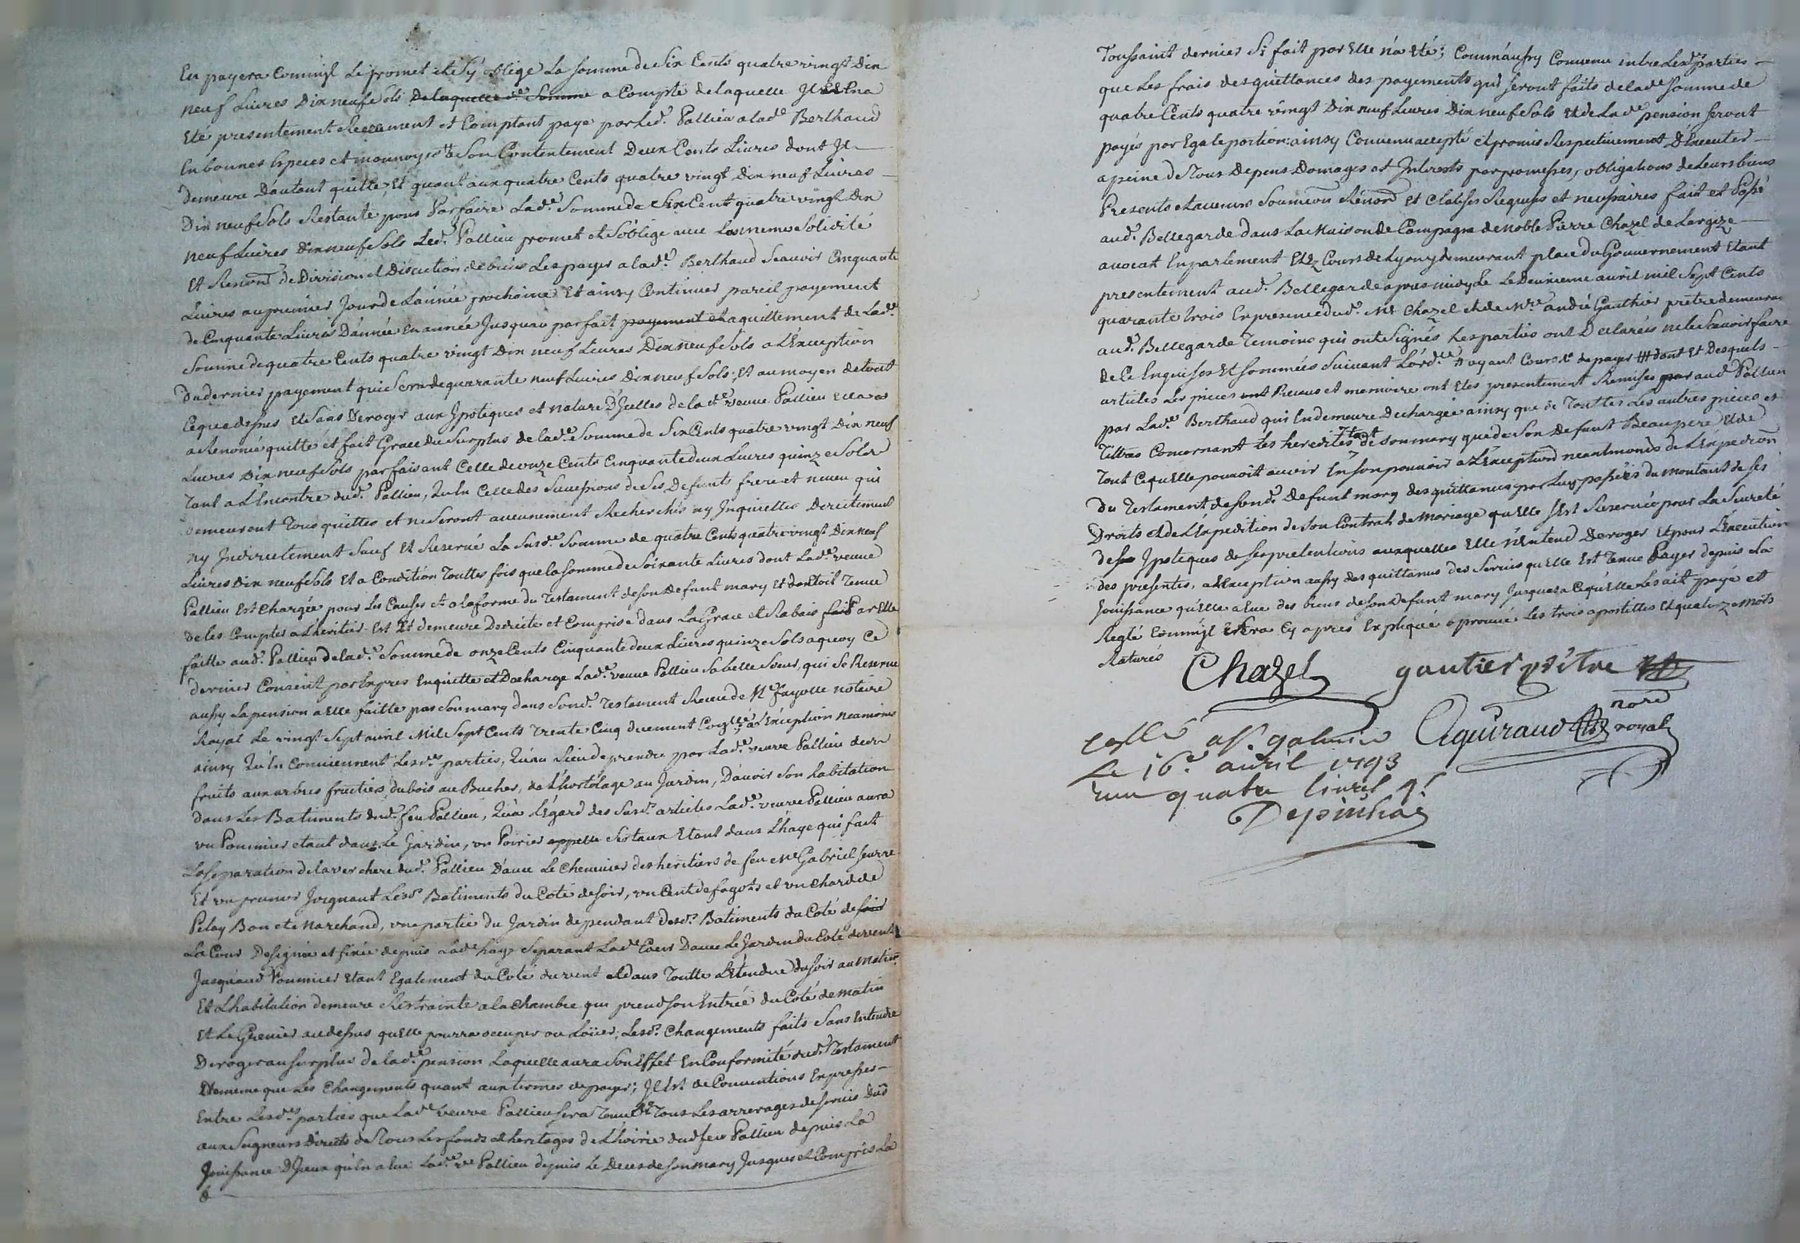 En payera comm'jl le promet et s'y oblige la somme de six cents quatre vingt dix
neuf Livres dix neuf sols de laquelle de. somme a compte de laquelle jl en a
Eté presentement Reelement et comptant payé par led. Pallieu a lade. Berthaud
en bonnes especes et monnoyes a son contentement Deux Cents Livres dont jl
demeure d'autant quitte, Et quant aux quatre cents quatre vingt dix neuf Livres
Dix neuf sols Restante pour Parfaire lade. somme de six cent quatre vingt dix
neuf Livres Dix neuf sols led. Pallieu promet et s'oblige avec la meme solidité
Et Renon. de Division et Discution de biens les payer a lade. Berthaud scavoir cinquante
Livres au premier jour de l'année prochaine Et ainsy continuer pareil payement
de cinquante Livres D'année en année jusqu'au parfait payement et aquittement de lade.
somme de quatre cents quatre vingt dix neuf Livres Dix neuf sols a L'Exception
Du dernier payement qui sera de quarante neuf Livres Dix neuf sols; Et au moyen de tout
ce que dessus et sans Deroger aux ypoteques et nature d'jcelles de lade. veuve Pallieu elle a
Renoncé quitte et fait Grace du surplus de lade. somme de six Cents quatre vingt Dix neuf
Livres Dix neuf sols parfaisant celle de onze Cents Cinquante deux Livres quinze sols
Tant a l'Encontre dud. Pallieu, qu'en celle des successions de ses Defunts frere et neveu qui
Demeurent Tous quittes et ne seront aucunement Recherchés ny jnquiettes Directement
ny jndirectement sauf Et Reservé La susde. somme de quatre Cents quatre vingt Dix neuf
Livres Dix neuf sols Et a Condition Touttes fois que la somme de soixante Livres dont lade. veuve
Pallieu est chargée pour les causes et a la forme du Testament de son defunt mary et dont Tenue
de les compter a L'heritier Est Et demeure Deduite et comprise dans la Grace et Rabais fait Par Elle
faitte aud. Pallieu de lade. somme de onze Cents Cinquante deux Livres quinze sols a quoy Ce
dernier consent par Expres En quitte et Decharge Lade. veuve Pallieu sa belle sœur, qui se Reserve
aussy la pension a elle faitte par son mary dans son. Testament Receu de Me Fayolle notaire
Royal le vingt sept avril Mil sept Cents Trente Cinq duement a l'Exception neamoins
ainsy qu'en conviennent Lesdes. parties, qu'au lieu de prendre par Lade. veuve Pallieu des
fruits aux arbres fruitiers, du bois au Bucher, de L'hortolage au jardin, D'avoir son habitation
dans les Batiments dud. feu Pallieu, Qu'a L'égard des susd. articles Lade. veuve Pallieu aura
un Pommier etant dans le jardin, un Poirier appelle Etant dans L'haye qui fait
La separation de la verchere dud. Pallieu D'avec Le Chemin des heritiers de feu Me Gabriel
Et un prunier joignant Lesd. Batiments du Coté de soir, un Cent de fagots et un Char de
Bon et Marchand, une partie du jardin dependant desd. Batiments du Coté de soir
La Cour Designée et fixée depuis lade. haye separant Lade. Cour D'avec Le jardin du Coté de vent
jusqu'aud. Pommier Etant Egalement du Coté de vent et dans Toutte L'Etendue du soir au Matin
Et L'habitation demeure Restrainte a la Chambre qui prend son Entrée du Coté de matin
Et Le Grenier au dessus qu'elle pourra occuper ou Loüer; Lesd. Changements faits sans Entendre
Deroger au surplus de lade. pension Laquelle aura son Effet En Conformité dud. Testament
Et que les Changements quant aux termes de payer; jl est de Conventions Expresses
Entre Lesdes. parties que lade. veuve Pallieu sera Tenue de Tous Les arrerages de servis dus
aux seigneurs Directs de Tous Les fonds et heritages de L'hoirie dud. feu Pallieu depuis La
jouissance D'jceux qu'en a eue Lade. ve. Pallieu depuis Le Deces de son mary jusques et Compris La
Toussaint dernier si fait par Elle n'a Eté; comm'aussy Convenu entre Lesd. parties
que Les frais des quittances des payements qui seront faits de lade. somme de
quatre Cents quatre vingt Dix neuf Livres Dix neuf sols et de Lade. pension seront
payés par Egale portion; ainsy Convenu accepté et promis Respectivement D'Executer
a peine de Tous Depens Domages et Interests par promesses, obligations de Leurs biens
Presents et avenirs soumis.on Renon.on Et Clauses Requises et necessaires fait et Passé
aud. Bellegarde dans La Maison de Campagne de Noble Pierre Chazel de Largize
avocat En parlement Et Ez Cours de Lyon y demeurant place du Gouvernement Etant
presentement aud. Bellegarde apres midy Le Le Deuxieme avril mil sept Cents
quarante Trois En presence dud. Mr Chazel et de Mre. andré Gauthier prêtre demeurant
aud. Bellegarde Temoins qui ont signés Les parties ont Declarés ne le scavoir faire
de Ce Enquises Et sommées suivant L'orde. ayant Cours de payer dont Et Desquels
articles Les pieces ont Receus et memoire ont Etes presentement Remises par aud. Pallieu
par Lade. Berthaud qui En demeure Dechargée ainsy que de Touttes Les autres pieces et
Tittres Concernant les heredites tant de son mary que de son Defunt Beaupere Et de
Tout Ce qu'elle pouvoit avoir En son pouvoir a L'Exception neantmoins de L'Expedi.on
du Testament de sond. Defunt mary des quittances par Luy passées du Montant de ses
Droits et de L'Expedition de son Contrat de Mariage qu'elle s'est Reservée pour La sureté
de ses ypoteques de ses pretentions auxquelles Elle n'Entend Deroger Et pour L'Execution
des presentes, a L'exception aussy des quittances des servis qu'elle Est Tenue Payer depuis La
jouissance qu'elle a Eue des biens de son Defunt mary jusques a Ce qu'elle Les ait payé et
Reglé Comm'jl Sera Cy apres Expliqué aprouvé Les trois apostilles Et quatorze Mots
Raturés
Chazel gautier prêtre
Aguiraud nore royal
scellé a st. galmier
Le 16e. avril 1743
quatre livres
Depinhac